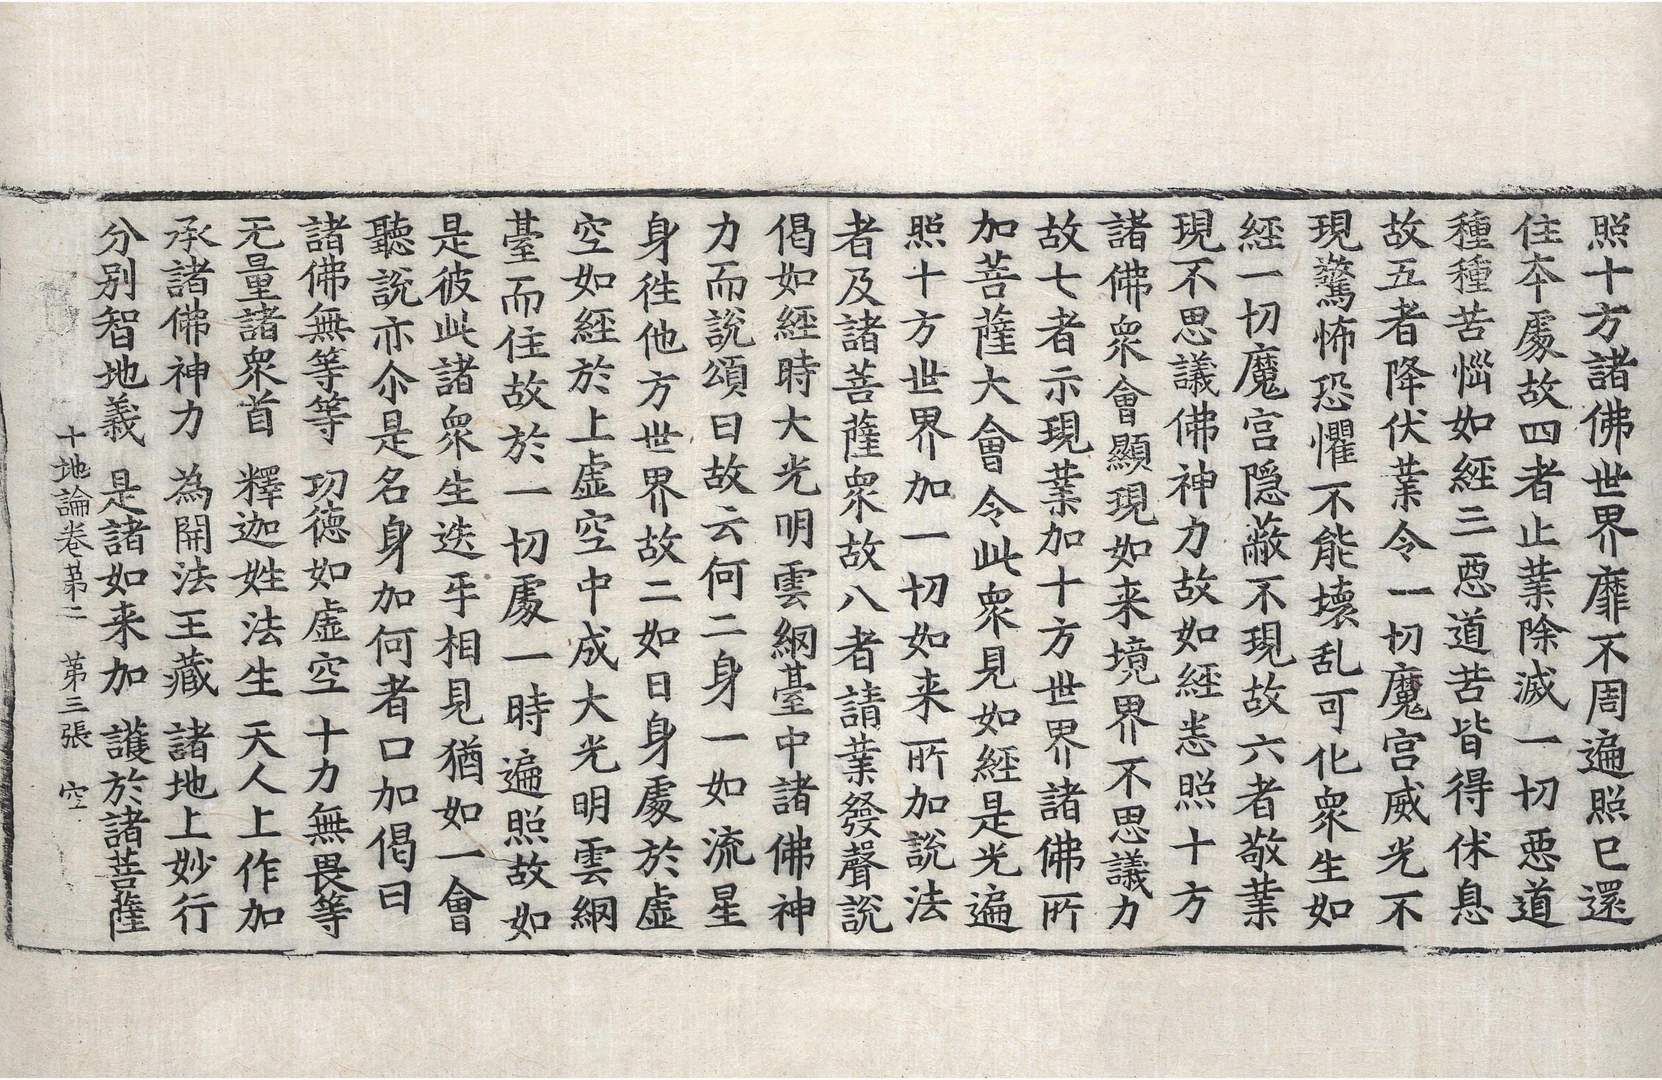 照十方諸佛世界靡不周遍照已還
住本處故四者止業除滅一切惡道
種種苦惱如經三惡道苦皆得休息
故五者降伏業令一切魔宮威光不
現驚怖恐懼不能壞乱可化眾生如
經一切魔宮隱蔽不現故六者敬業
現不思議佛神力故如經悉照十方
諸佛眾會顯現如来境界不思議力
故七者示現業加十方世界諸佛所
加菩薩大會令此眾見如經是光遍
照十方世界加一切如来所加說法
者及諸菩薩眾故八者請業發聲說
偈如經時大光明雲網臺中諸佛神
力而說頌曰故云何二身一如流星
身徃他方世界故二如日身處於虛
空如經於上虛空中成大光明雲網
臺而住故於一切處一時遍照故如
是彼此諸眾生迭乎相見猶如一會
聽說亦尒是名身加何者口加偈曰
諸佛無等等 功德如虛空 十力無畏等
无量諸眾首 釋迦姓法生 天人上作加
承諸佛神力 為開法王藏 諸地上妙行
分別智地義 是諸如来加 護於諸菩薩
十地論卷苐二 第三張 空